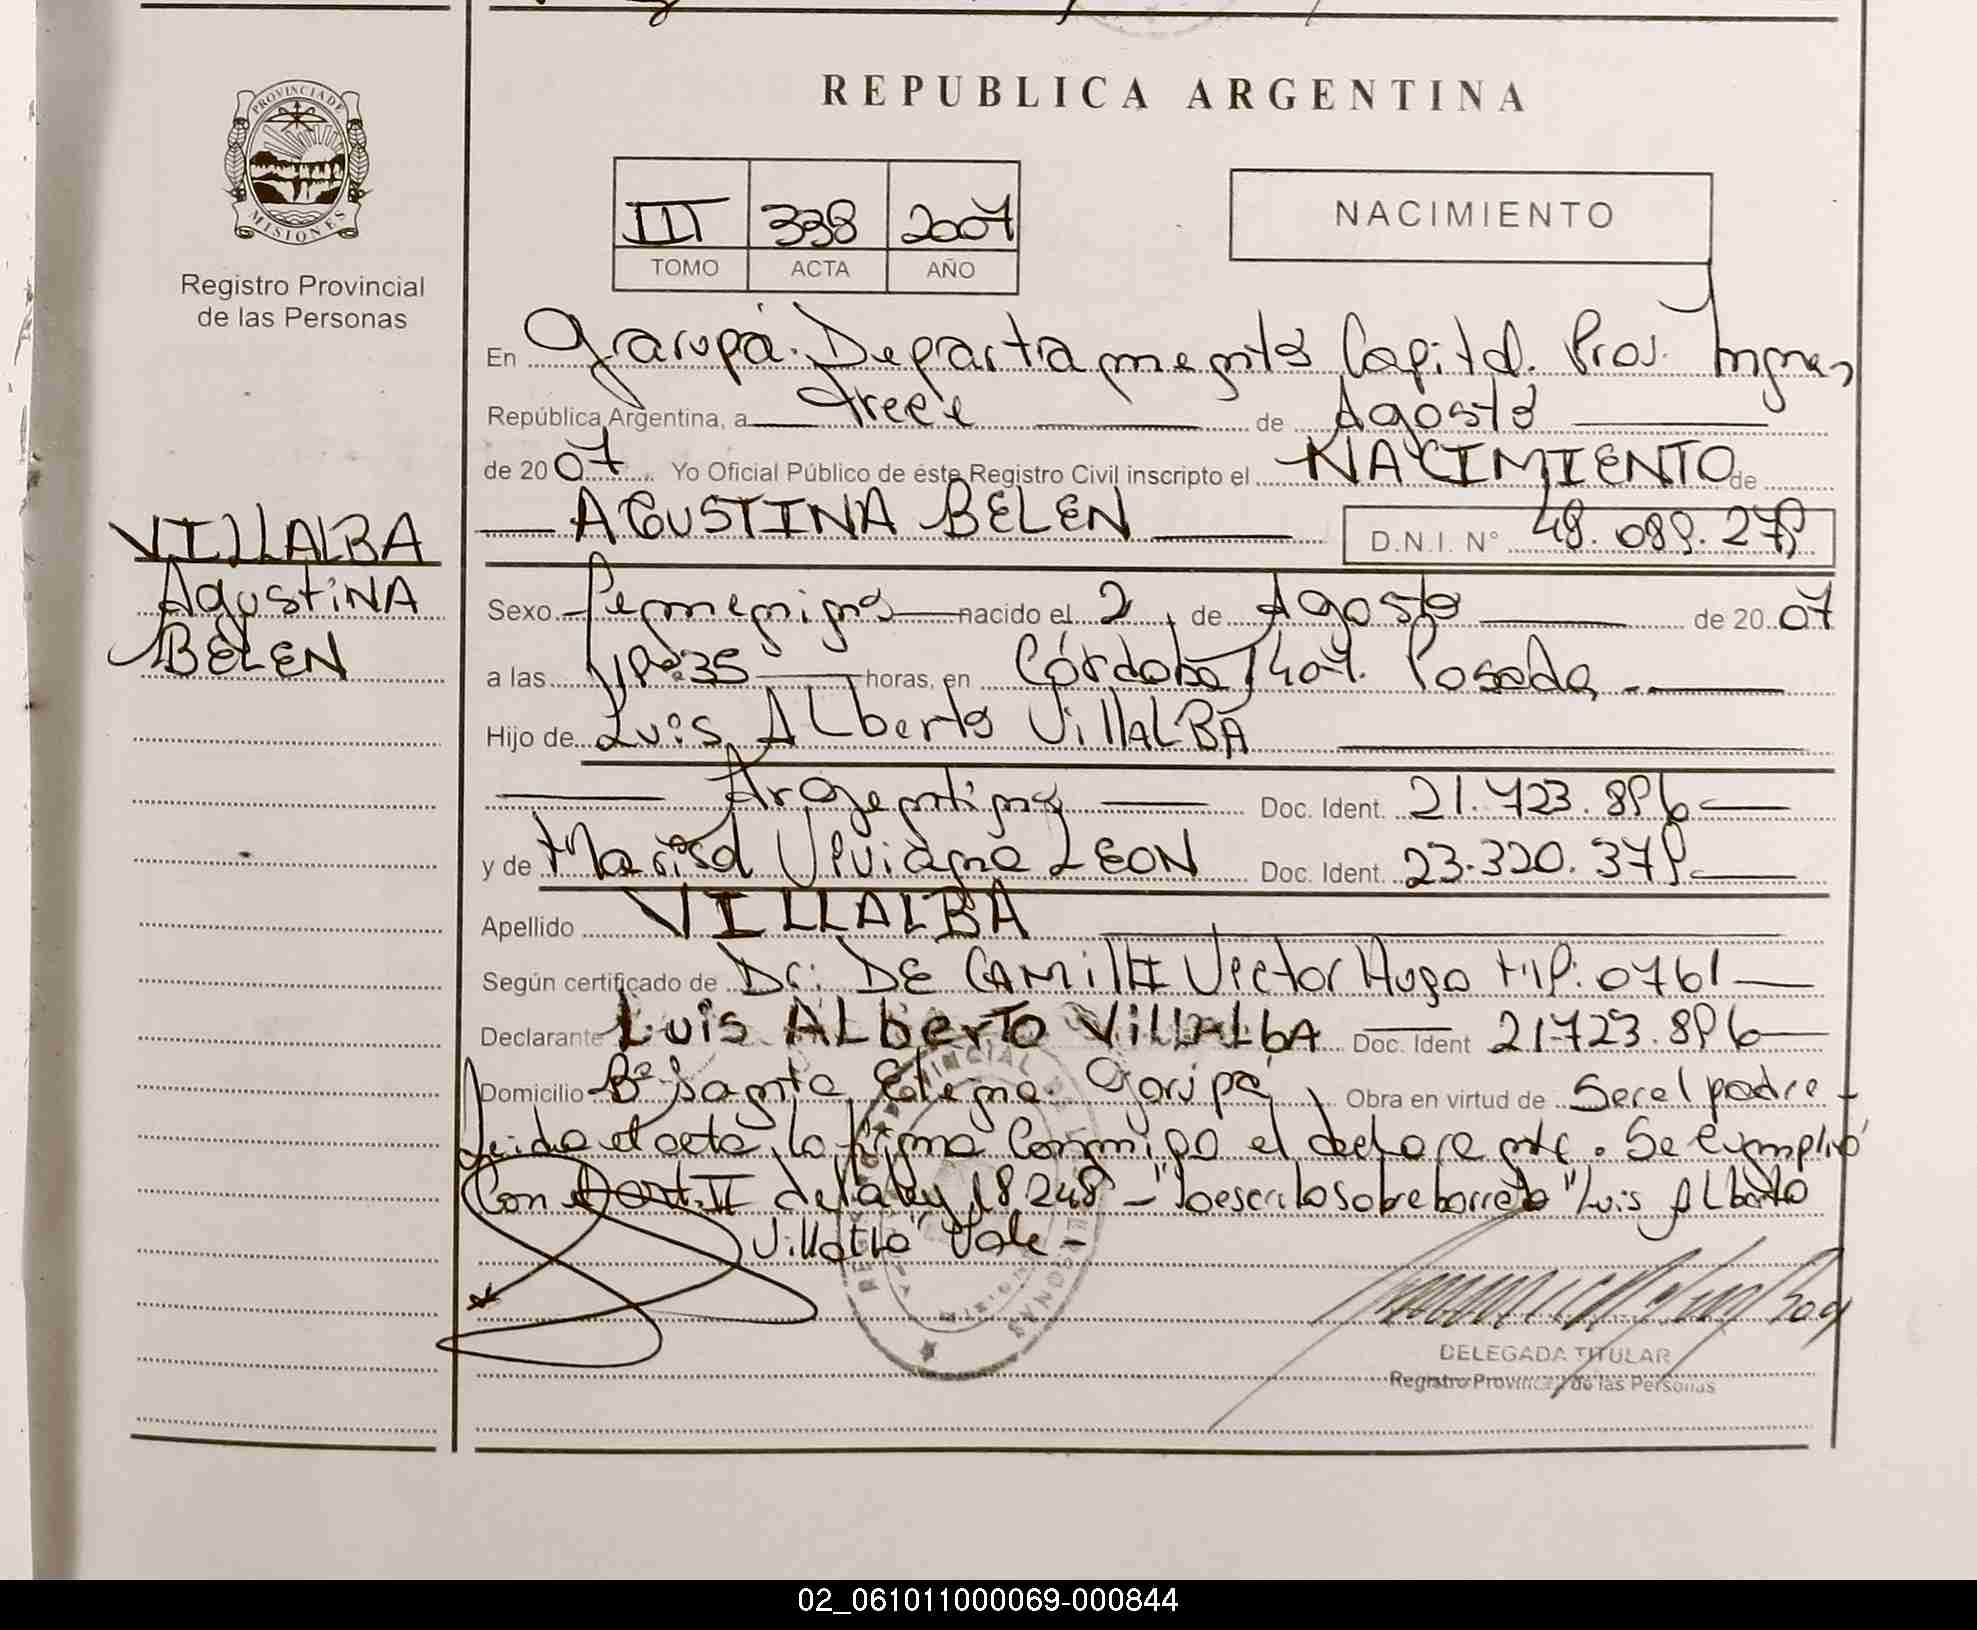 REPUBLICA ARGENTINA
PROVINCIA DE
MISIONES
Registro Provincial
de las Personas
III 338 2007
TOMO ACTA AÑO
NACIMIENTO
En Garupá. Departamento Capital. Prov. Mnes,
República Argentina, a trece de Agosto
de 2007 Yo Oficial Público de este Registro Civil inscripto el NACIMIENTO de
AGUSTINA BELEN D.N.I. N° 48.089.279
VILLALBA
AgustiNA
BELEN
Sexo femenino nacido el 2, de Agosto de 2007
a las 19:35 horas, en Córdoba 1407. Posadas
Hijo de Luis Alberto VillALBA
Argentino Doc. Ident. 21.723.896
y de Marisol Viviana LEON Doc. Ident. 23.320.379
Apellido VILLALBA
Según certificado de Dr: DE CAMilli Victor Hugo M.P: 0761
Declarante Luis ALberTo VillALbA Doc. Ident 21.723.896
Domicilio Bº Santa Elena. Garupá, Obra en virtud de Ser el padre -
Leída el acta, la firma conmigo el declarante. Se cumplió
Con el art. II de la ley 18248 - "lo escrito sobre borrado "Luis Alberto
Villalba" Vale -
DELEGADA TITULAR
Registro Provincial de las Personas
02_061011000069-000844